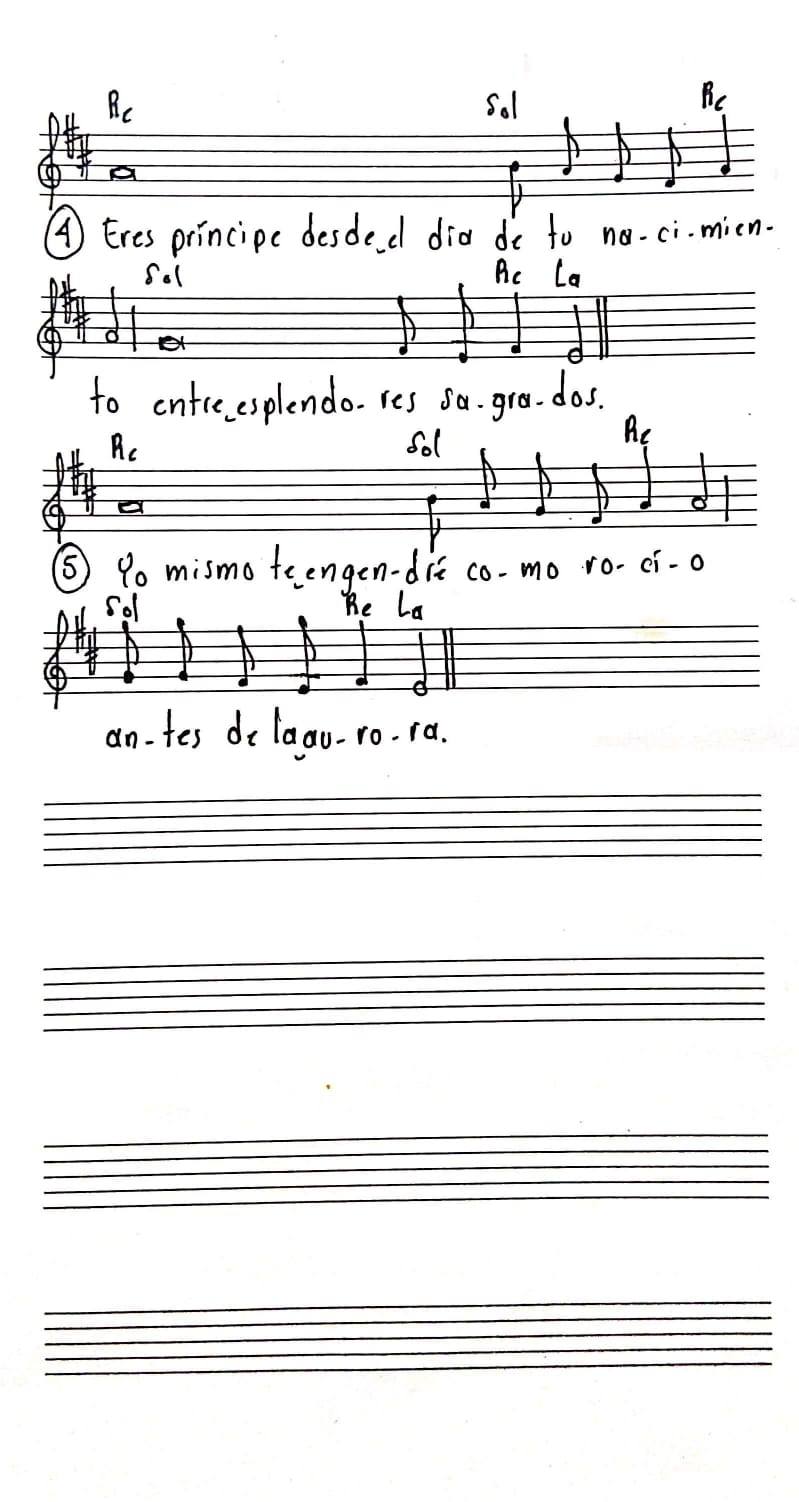 Re Sol Re
④ Eres príncipe desde‿el día de tu na-ci-mien-
Sol Re La
to entre‿esplendo-res sa-gra-dos.
Re Sol Re
⑤ Yo mismo te‿engen-dré co-mo ro-cí-o
Sol Re La
an-tes de la‿au-ro-ra.